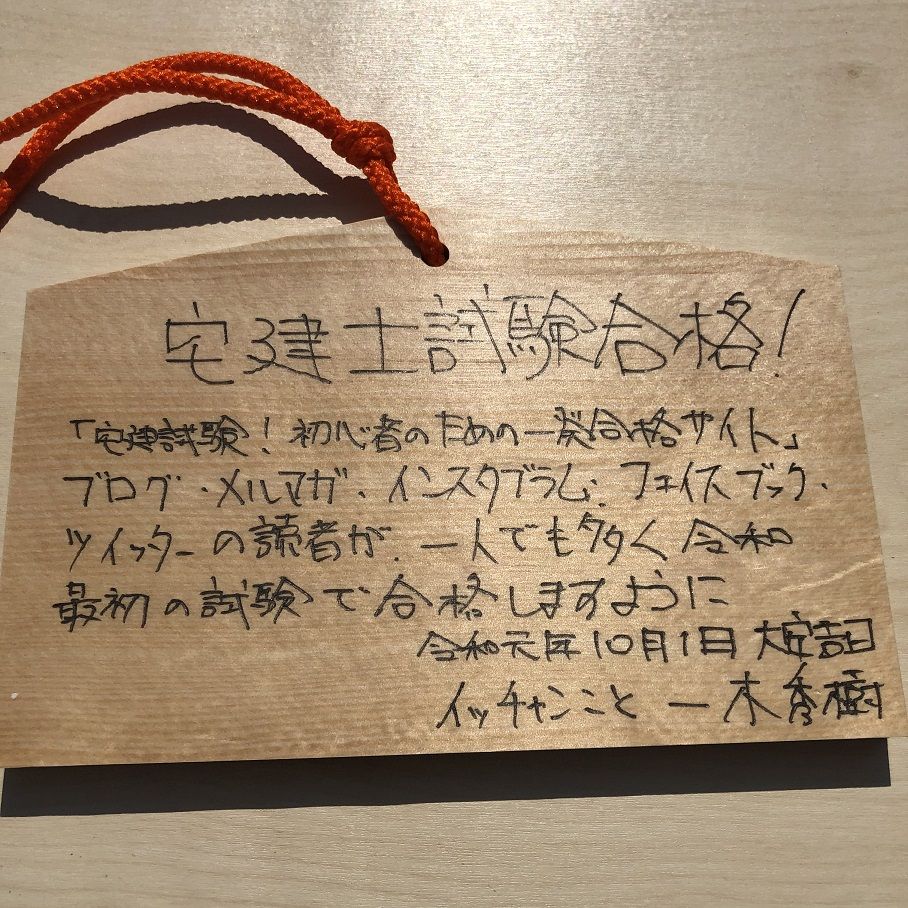 宅建士試験合格!
「宅建試験!初心者のための一発合格サイト」
ブログ・メルマガ・インスタグラム・フェイスブック・
ツイッターの読者が、一人でも多く令和
最初の試験で合格しますように
令和元年10月1日 大安吉日
イッチャンこと 一木秀樹